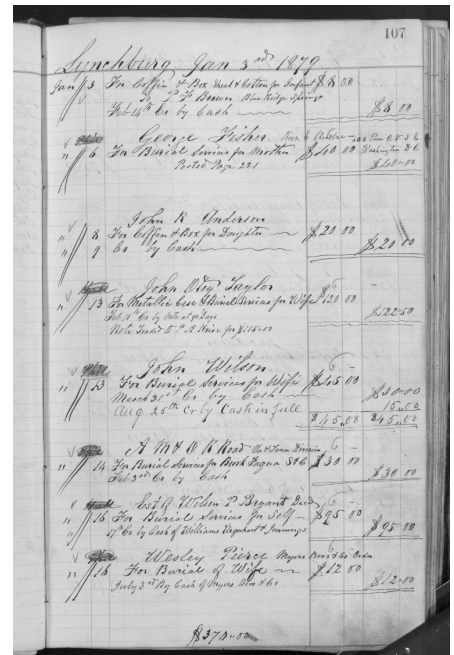 107
Lynchburg Jan 3rd 1879
Jan 3 For Coffin & Box Sheet & Cotton for Infant $8 00
P F Brown Blue Ridge Springs
Feb 14th Cr by Cash $8 00
George Fisher
" 6 For Burial Services for Mother $40 00 Washington D.C.
Posted Page 221 $40.00
John R Anderson
" 8 For Coffin & Box for Daughter $20 00
" 9 Cr by Cash $20 00
John Taylor
" 13 For Metallic Case & Burial Services for Wife $120 00
Feb Cr by Note at 90 Days $122.50
Note
John Wilson
" 13 For Burial Services for Wife $45 00
March 31st Cr by Cash $30.00
Aug 25th Cr by Cash in full 15.00
$45.00 $45.00
A M & O R Road Va & Tenn Division
" 14 For Burial Services for $30 00
Feb 3rd Cr by Cash $30 00
Est of Wilson P Bryant Decd
" 16 For Burial Services for Self $95 00
17 Cr by Cash of Williams & Jennings $95 00
Wesley Pierce Myers Bros & Co Order
" 16 For Burial of Wife $12 00
July 3rd By Cash of Myers Bros & Co $12.00
$370.00